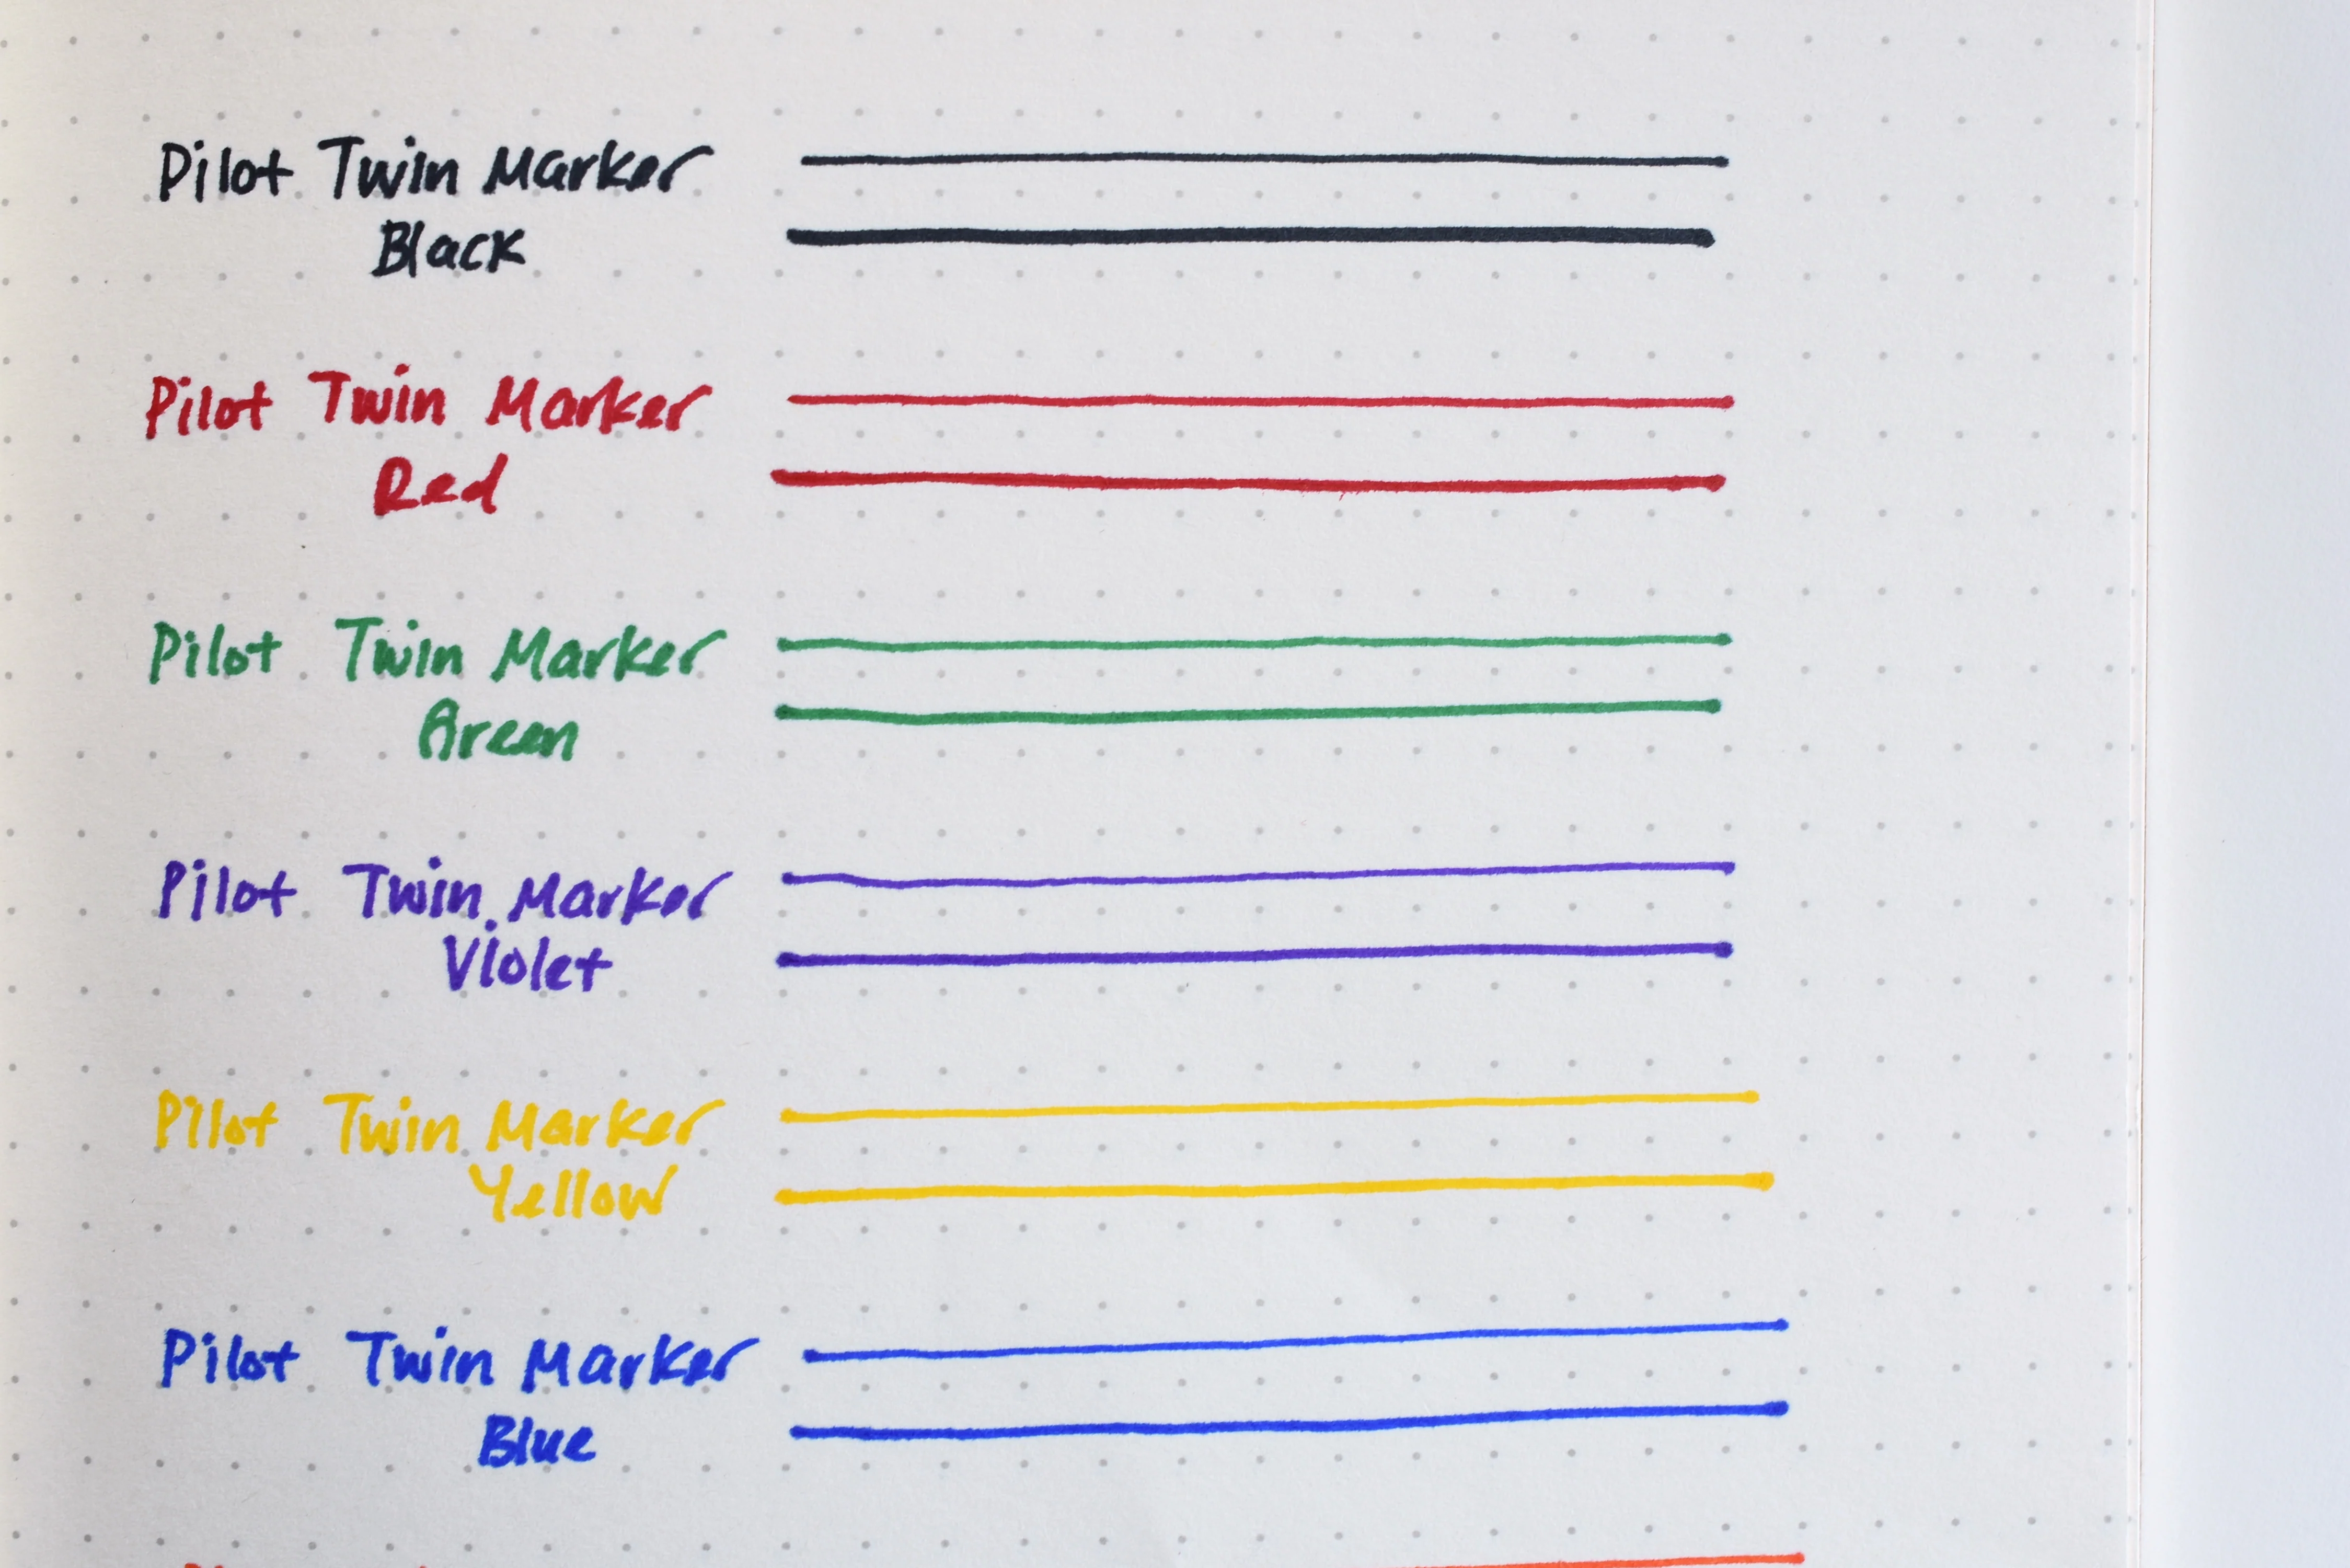 Pilot Twin Marker
Black
Pilot Twin Marker
Red
Pilot Twin Marker
Green
Pilot Twin Marker
Violet
Pilot Twin Marker
Yellow
Pilot Twin Marker
Blue